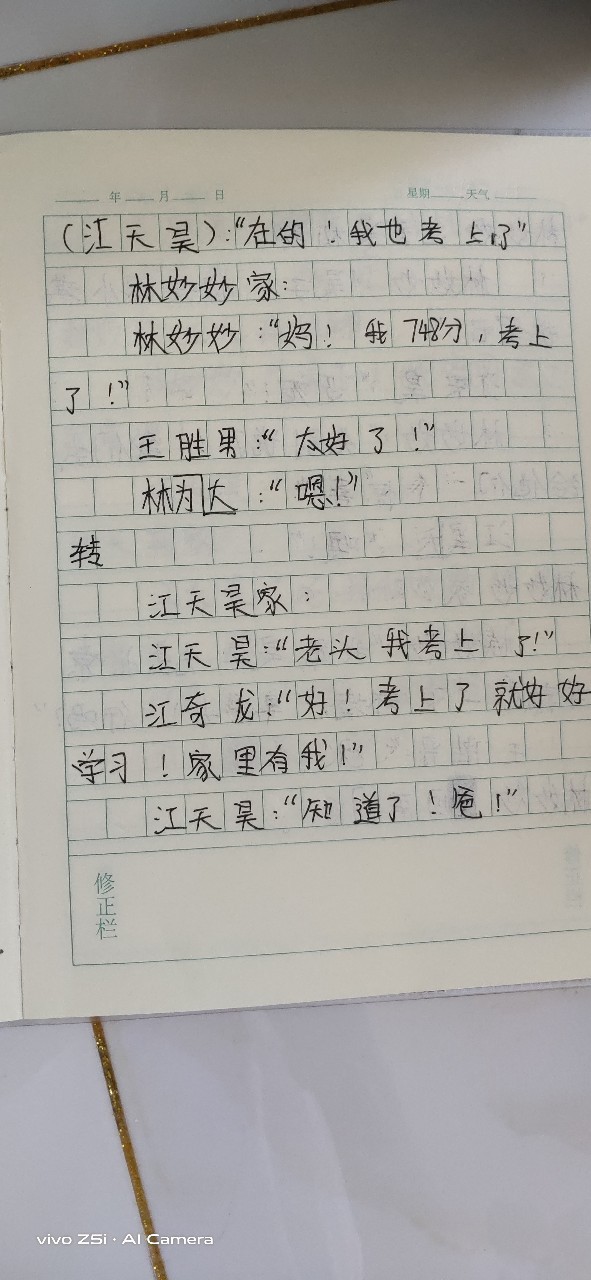 年 月 日 星期 天气
(江天昊):“在的！我也考上了”
林妙妙家：
林妙妙：“妈！我748分，考上
了！”
王胜男：“太好了！”
林为大：“嗯！”
转
江天昊家：
江天昊：“老头我考上了！”
江奇龙：“好！考上了就好好
学习！家里有我！”
江天昊：“知道了！爸！”
修正栏
vivo Z5i · AI Camera